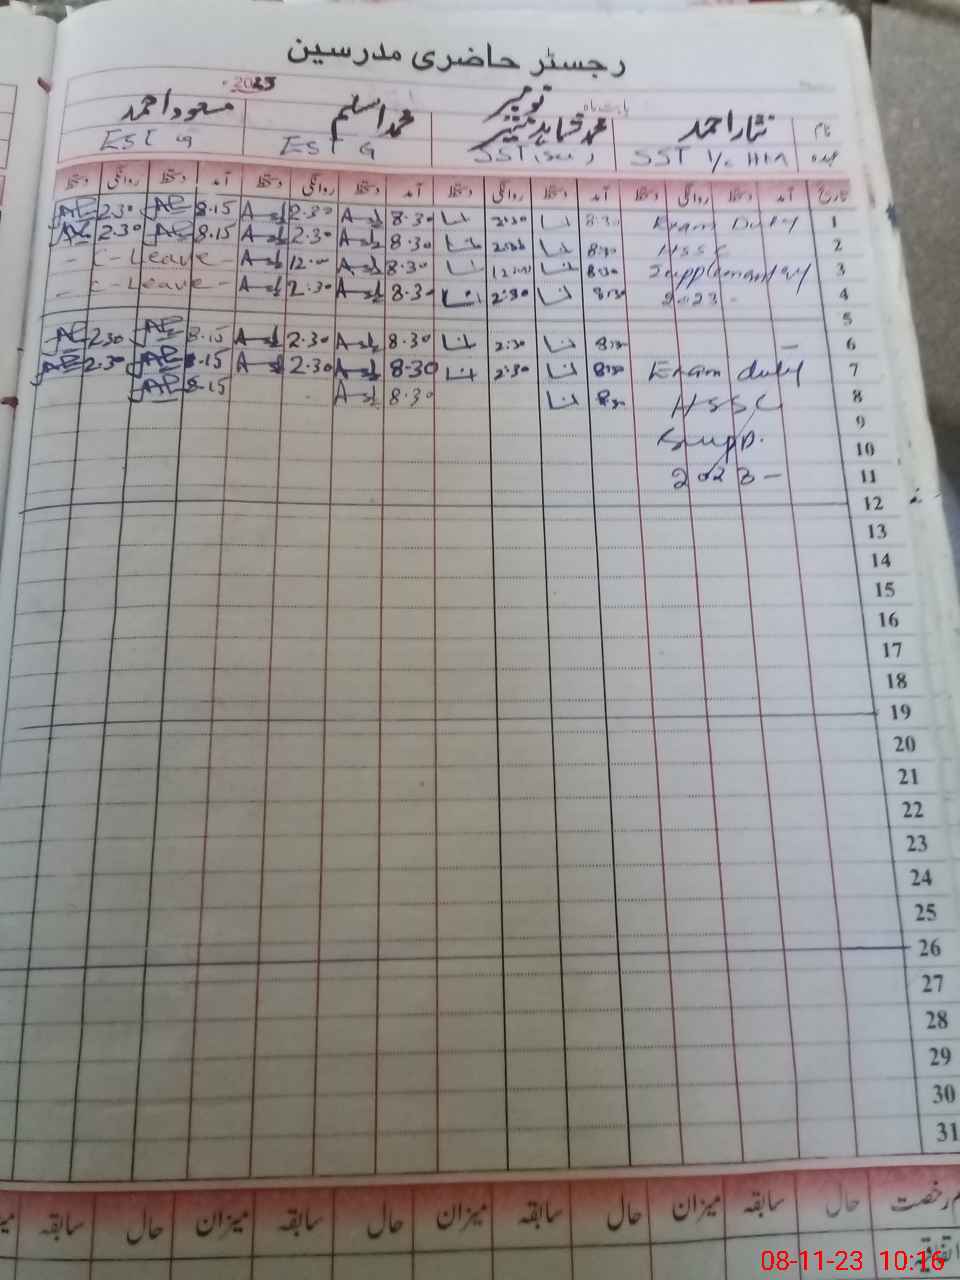 رجسٹر حاضری مدرسین
2023
بابت ماہ نومبر
نام نثار احمد محمد شاہد محمد اسلم مسعود احمد
عہدہ SST I/C H/M SST EST G EST G
تاریخ آمد دستخط روانگی دستخط آمد دستخط روانگی دستخط آمد دستخط روانگی دستخط آمد دستخط روانگی دستخط
1 Exam Duty 8.30 2.30 8.30 2.30 8.15 2.30
2 HSSC 8.30 2.30 8.30 2.30 8.15 2.30
3 Supplementary 8.30 12.00 8.30 12.00 - C-Leave -
4 2023 - 8.30 2.30 8.30 2.30 - C-Leave -
5
6 - 8.30 2.30 8.30 2.30 8.15 2.30
7 Exam duty 8.30 2.30 8.30 2.30 8.15 2.30
8 HSSC 8.30 8.30 8.15
9
10 Supp.
11 2023 -
12
13
14
15
16
17
18
19
20
21
22
23
24
25
26
27
28
29
30
31
رخصت حال سابقہ میزان حال سابقہ میزان حال سابقہ میزان حال سابقہ
اتفاقیہ
08-11-23 10:16